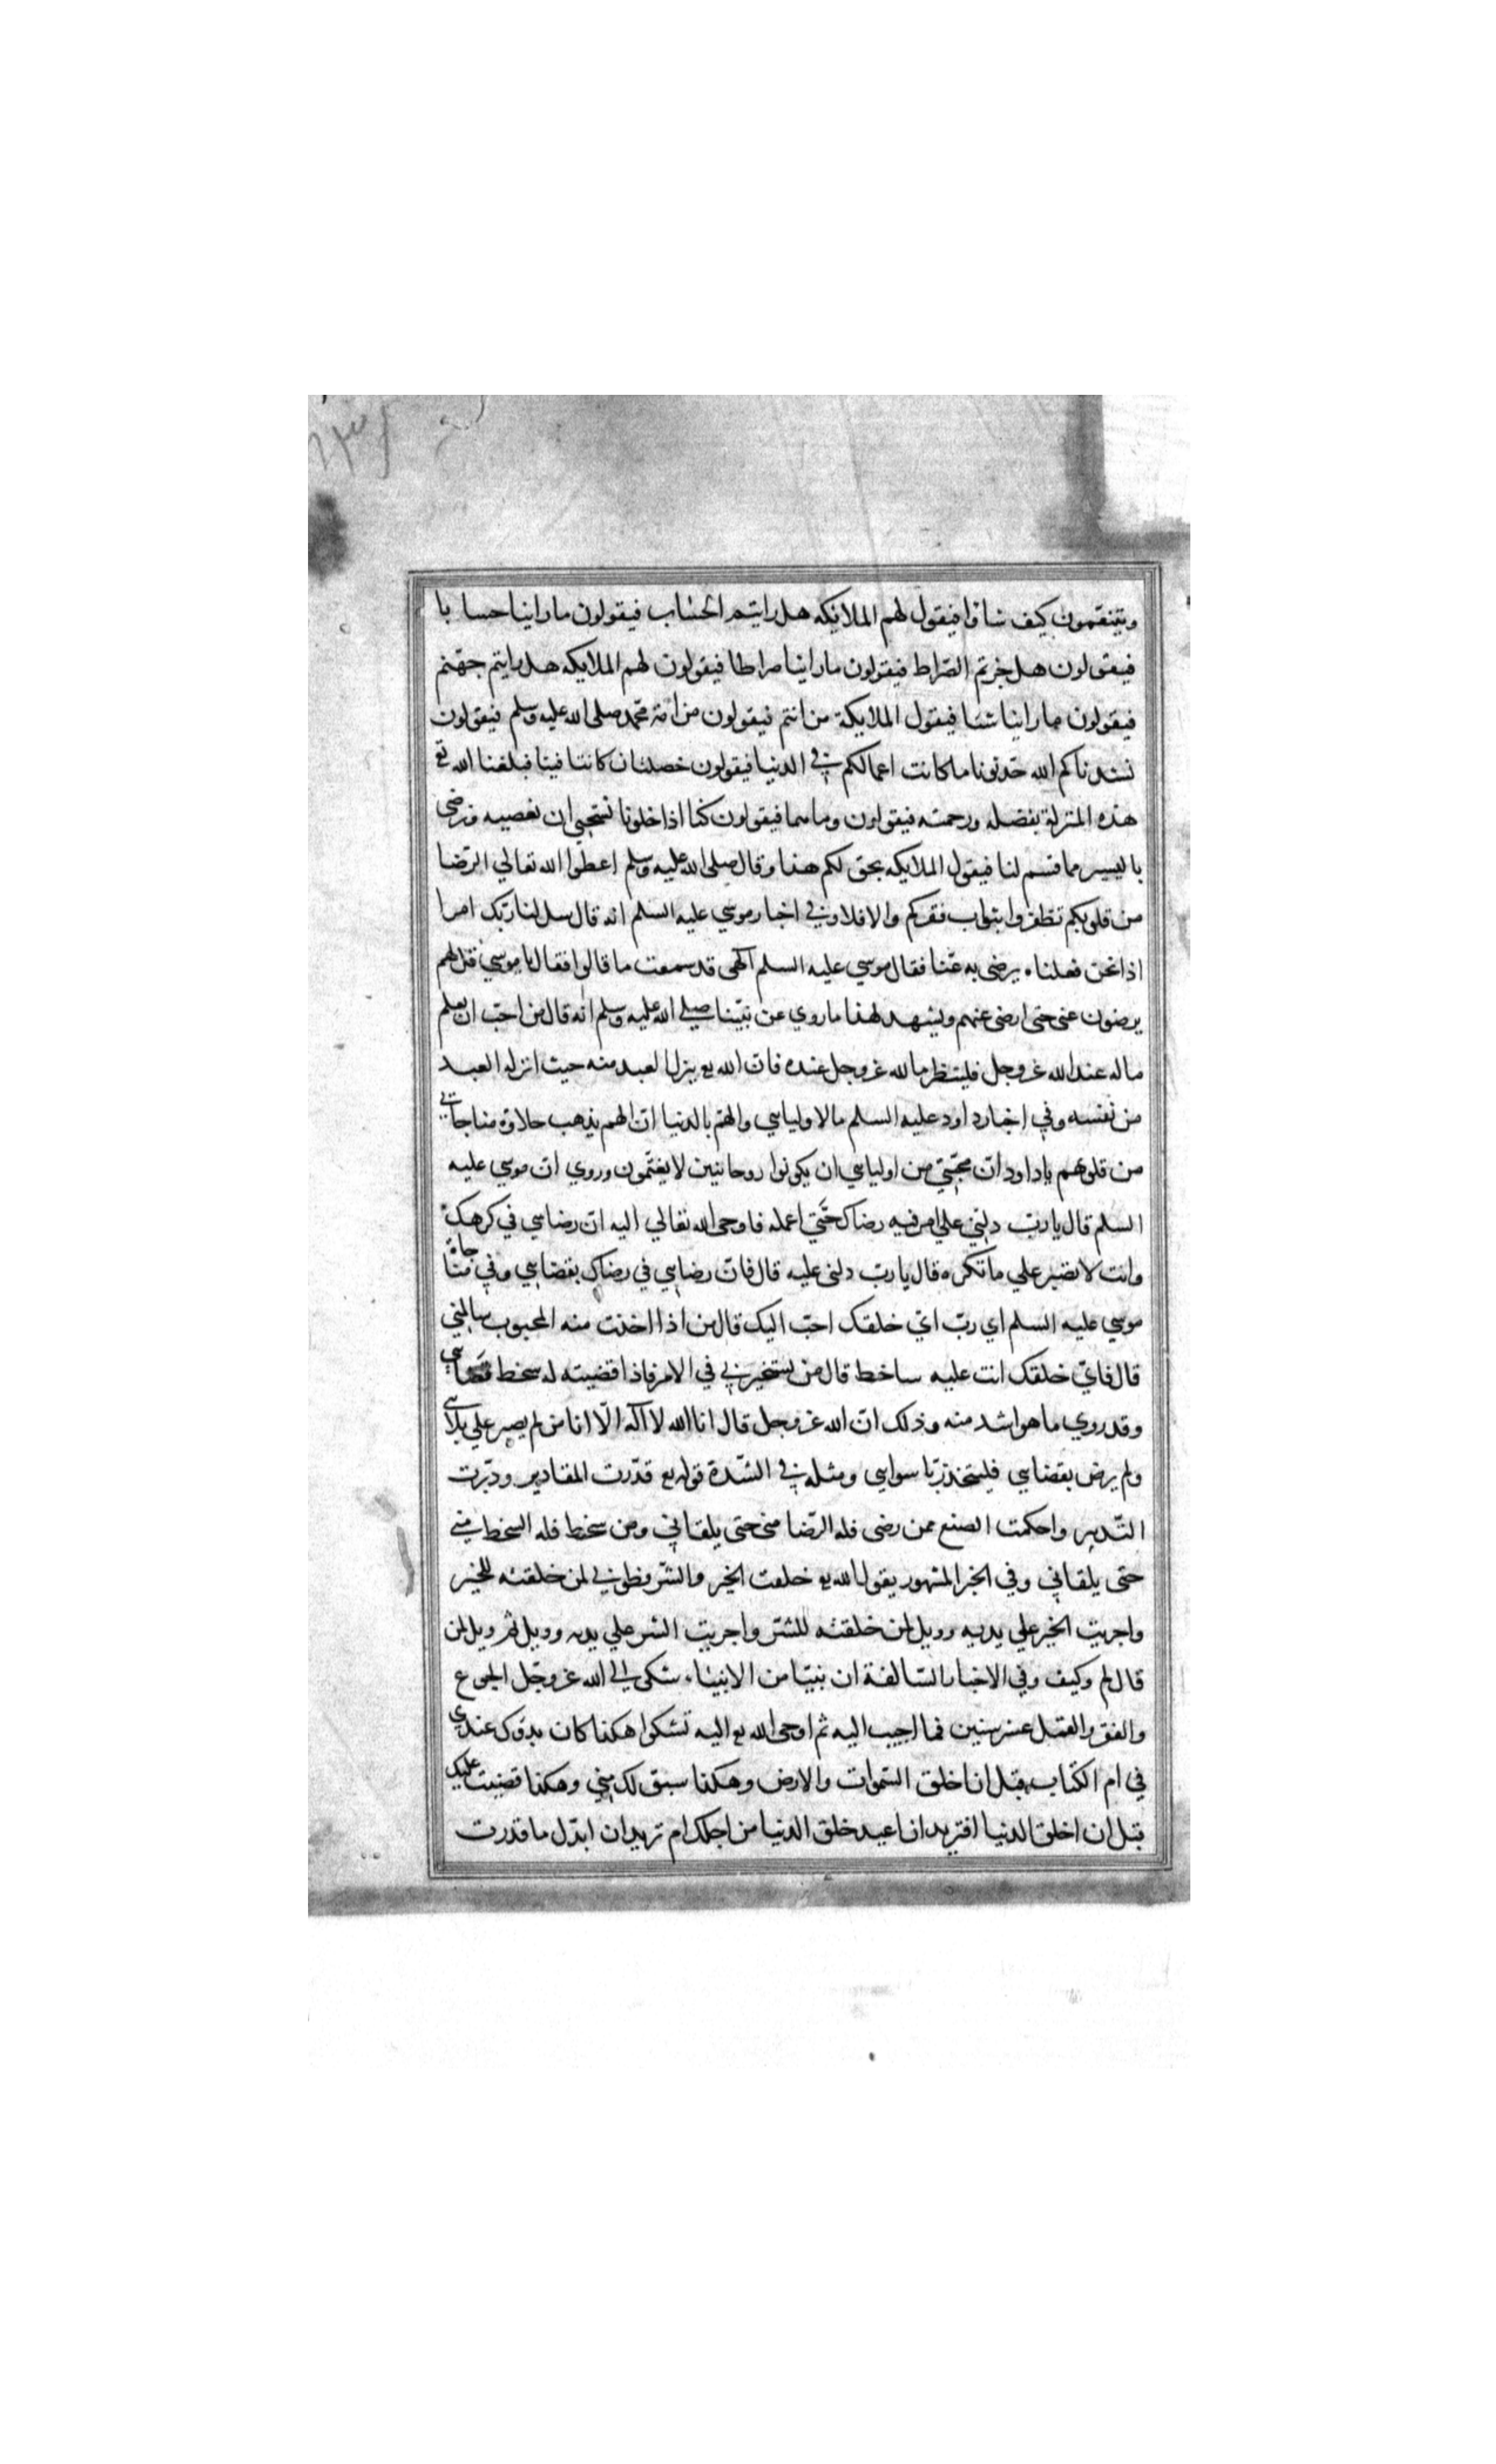 ويتنعمون كيف شاؤا فيقول لهم الملائكه هل رايتم الحساب فيقولون ما راينا حسابا
فيقولون هل جزتم الصراط فيقولون ما راينا صراطا فيقولون لهم الملايكه هل رايتم جهنم
فيقولون ما راينا شئا فيقول الملايكة من انتم فيقولون من امة محمد صلى الله عليه وسلم فيقولون
نشدناكم الله حدثونا ما كانت اعمالكم في الدنيا فيقولون خصلتان كانتا فينا فبلغنا الله تع
هذه المنزلة بفضله ورحمته فيقولون وما هما فيقولون كنا اذا خلونا نستحيي ان نعصيه ونرضى
باليسير مما قسم لنا فيقول الملايكه بحق لكم هذا وقال صلى الله عليه وسلم اعطوا الله تعالي الرضا
من قلوبكم تظفروا بثواب فقركم والا فلا وفي اخبار موسي عليه السلم انه قال سل لنا ربك امرا
اذا نحن فعلناه يرضى به عنا فقال موسي عليه السلم آلهى قد سمعت ما قالوا فقال يا موسي قل لهم
يرضون عنى حتى ارضى عنهم ويشهد لهذا ما روي عن نبينا صلى الله عليه وسلم انه قال من احب ان يعلم
ما له عند الله عز وجل فلينظر ما لله عز وجل عنده فان الله تع ينزل العبد منه حيث انزله العبد
من نفسه وفي اخبار داود عليه السلم ما لاوليايي والهم بالدنيا ان الهم يذهب حلاوة مناجاتي
من قلوبهم يا داود ان محبتي من اوليايي ان يكونوا روحانيين لا يغتمون وروي ان موسي عليه
السلم قال يا رب دلني علي امر فيه رضاك حتي اعمله فاوحى الله تعالي اليه ان رضايي في كرهك
وانت لا تصبر علي ما تكره قال يا رب دلنى عليه قال فان رضايي في رضاك بقضايي وفي مناجاة
موسي عليه السلم اي رب اي خلقك احب اليك قال من اذا اخذت منه المحبوب سالمني
قال فاي خلقك انت عليه ساخط قال من يستخيرني في الامر فاذا قضيته له سخط قضايي
وقد روي ما هو اشد منه وذلك ان الله عز وجل قال انا الله لا اله الا انا من لم يصبر علي بلايي
ولم يرض بقضايي فليتخذ ربا سوايي ومثله في الشدة قوله تع قدرت المقادير ودبرت
التدبير واحكمت الصنع فمن رضى فله الرضا منى حتى يلقاني ومن سخط فله السخط مني
حتى يلقاني وفي الخبر المشهور يقول الله تع خلقت الخير والشر فطوبي لمن خلقته للخير
واجريت الخير علي يديه وويل لمن خلقته للشر واجريت الشر علي يديه وويل ثم ويل لمن
قال لم وكيف وفي الاخبار السالفة ان نبيا من الانبياء شكى الى الله عز وجل الجوع
والفقر والقمل عشر سنين فما اجيب اليه ثم اوحى الله تع اليه تشكوا هكذا كان بدؤك عندي
في ام الكتاب قبل ان اخلق السموات والارض وهكذا سبق لك مني وهكذا قضيت عليك
قبل ان اخلق الدنيا افتريد ان اعيد خلق الدنيا من اجلك ام تريد ان ابدل ما قدرت